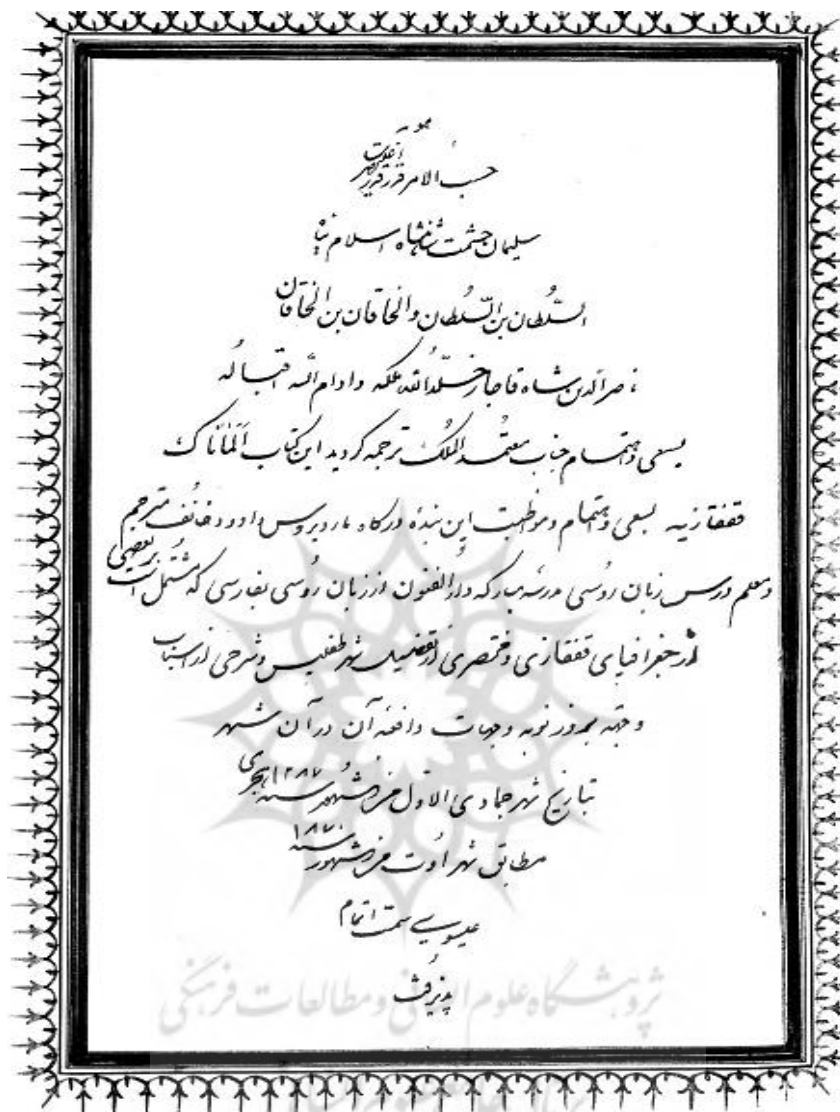 هو
حسب الامر قدر قدر اعلیحضرت
سلیمان حشمت شاهنشاه اسلام پناه
السُلطان بن السُلطان و الخاقان بن الخاقان
ناصرالدین شاه قاجار خلّد الله ملکه و ادام الله اقباله
بسعی و اهتمام جناب معتمدُ الملک ترجمه گردید این کتاب اَلمَاناک
قفقازیه بسعی و اهتمام و مواظبت این بندهٔ درگاه ماردیروس داود خانُف مترجم
و معلم درس زبان روُسی مدرسه مبارکه دارالفنون از زبان روُسی بفارسی که مشتمل است بر بعضی
از جغرافیای قفقازی و مختصری از تفضیل شهر طفلیس و شرحی از اسباب
و جهات واقعه آن در آن شهر
بتاریخ شهر جمادی الاوّل من شهور سنه ۱۲۸۷ هجری
مطابق شهر اُوت من شهور سنه ۱۸۷۰
عیسویی سمت اتمام
پذیرفت
پژوهشگاه علوم انسانی و مطالعات فرهنگی